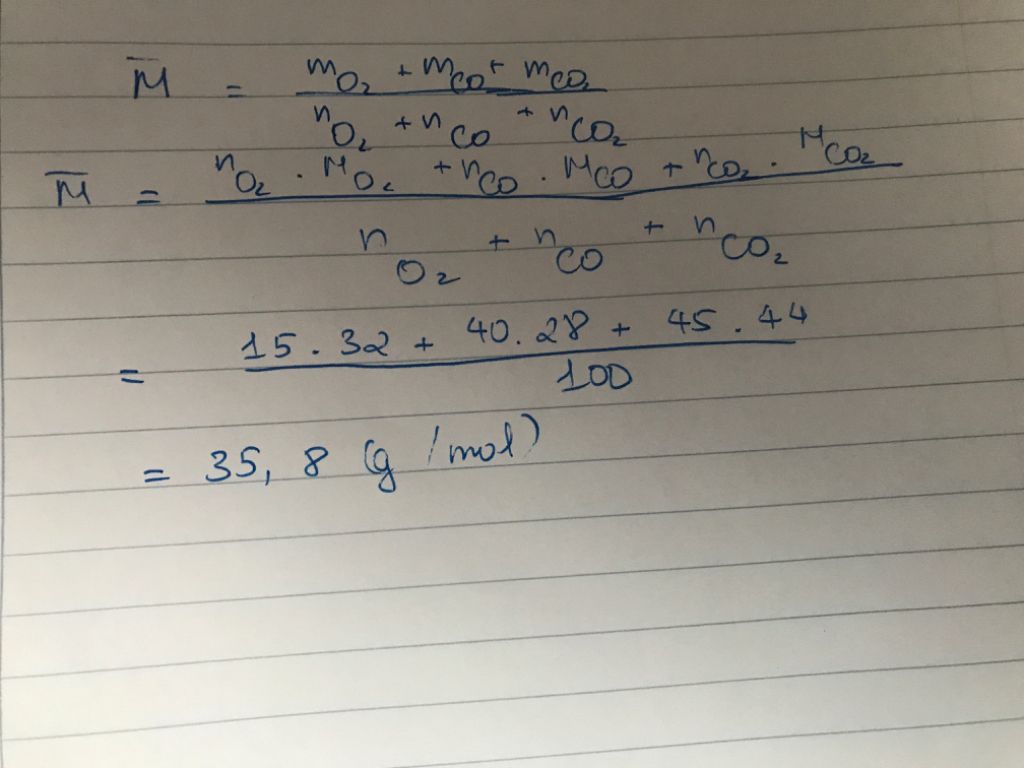 M̄ = (m_O₂ + m_CO + m_CO₂) / (n_O₂ + n_CO + n_CO₂)
M̄ = (n_O₂ . M_O₂ + n_CO . M_CO + n_CO₂ . M_CO₂) / (n_O₂ + n_CO + n_CO₂)
= (15 . 32 + 40 . 28 + 45 . 44) / 100
= 35,8 (g/mol)